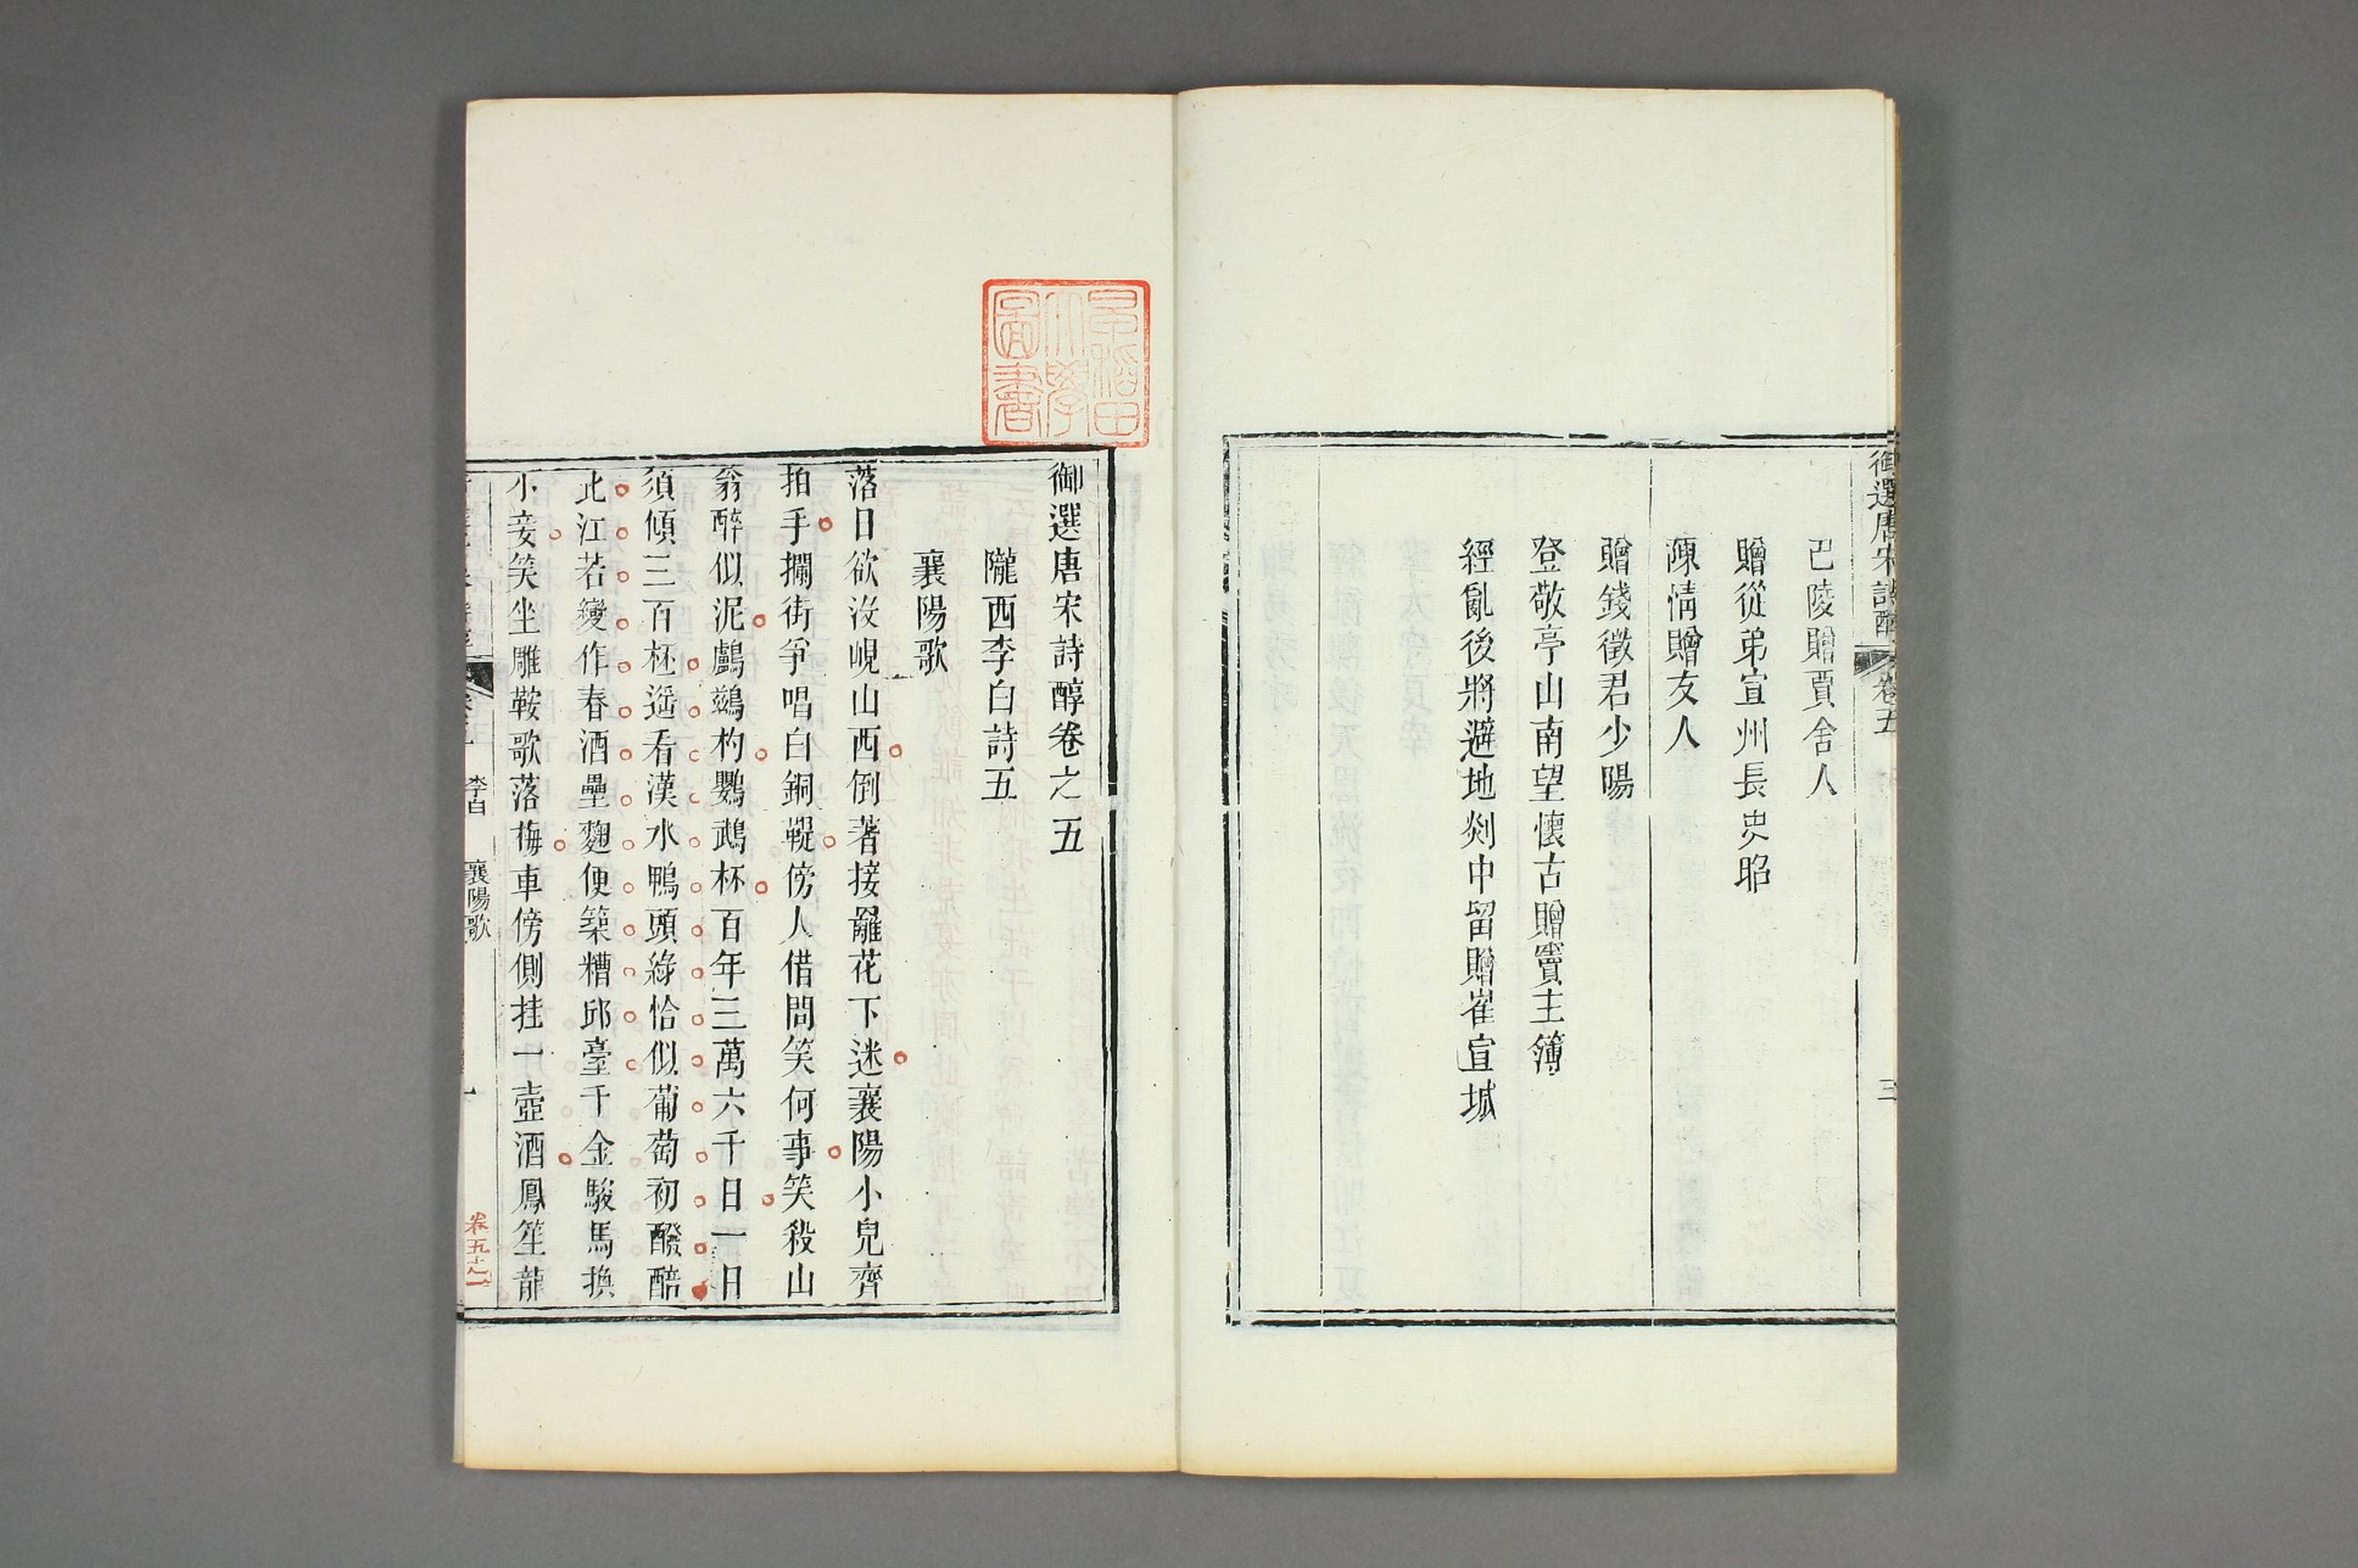 御選唐宋詩醇
卷五
三
巴陵贈賈舍人
贈從弟宣州長史昭
陳情贈友人
贈錢徵君少陽
登敬亭山南望懷古贈竇主簿
經亂後將避地剡中留贈崔宣城
早稻田
大學
圖書
御選唐宋詩醇卷之五
隴西李白詩五
襄陽歌
落日欲沒峴山西倒著接䍦花下迷襄陽小兒齊
拍手攔街爭唱白銅鞮傍人借問笑何事笑殺山
翁醉似泥鸕鷀杓鸚鵡杯百年三萬六千日一日
須傾三百杯遥看漢水鴨頭綠恰似葡萄初醱醅
此江若變作春酒壘麴便築糟邱臺千金駿馬換
小妾笑坐雕鞍歌落梅車傍側挂一壺酒鳳笙龍
李白
襄陽歌
一
卷五之一